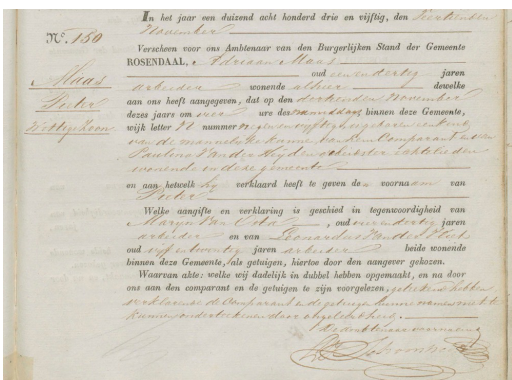 In het jaar een duizend acht honderd drie en vijftig, den Veertienden
November
N.º 150
Verscheen voor ons Ambtenaar van den Burgerlijken Stand der Gemeente
ROSENDAAL, Adriaan Maas
oud een en dertig jaren
Maas
arbeider wonende alhier dewelke
Pieter
aan ons heeft aangegeven, dat op den dertienden November
Wettige Zoon
dezes jaars om ure des namiddags binnen deze Gemeente,
wijk letter nummer negen en vijftig, is geboren een kind
van de mannelijke kunne, van hem Comparant en van
Paulina Van der Heyden echtelieden
wonende in deze gemeente
en aan hetwelk hij verklaard heeft te geven den voornaam van
Pieter
Welke aangifte en verklaring is geschied in tegenwoordigheid van
Maryn Van, oud en veertig jaren
arbeider en van Leonardus Van der
oud vijf en twintig jaren arbeider beide wonende
binnen deze Gemeente, als getuigen, hiertoe door den aangever gekozen.
Waarvan akte: welke wij dadelijk in dubbel hebben opgemaakt, en na door
ons aan den comparant en de getuigen te zijn voorgelezen, geteekend hebben
verklarende de Comparant en de getuigen hunne namen niet te
kunnen onderteekenen daar ongeleerdheid.
De Ambtenaar voornoemd